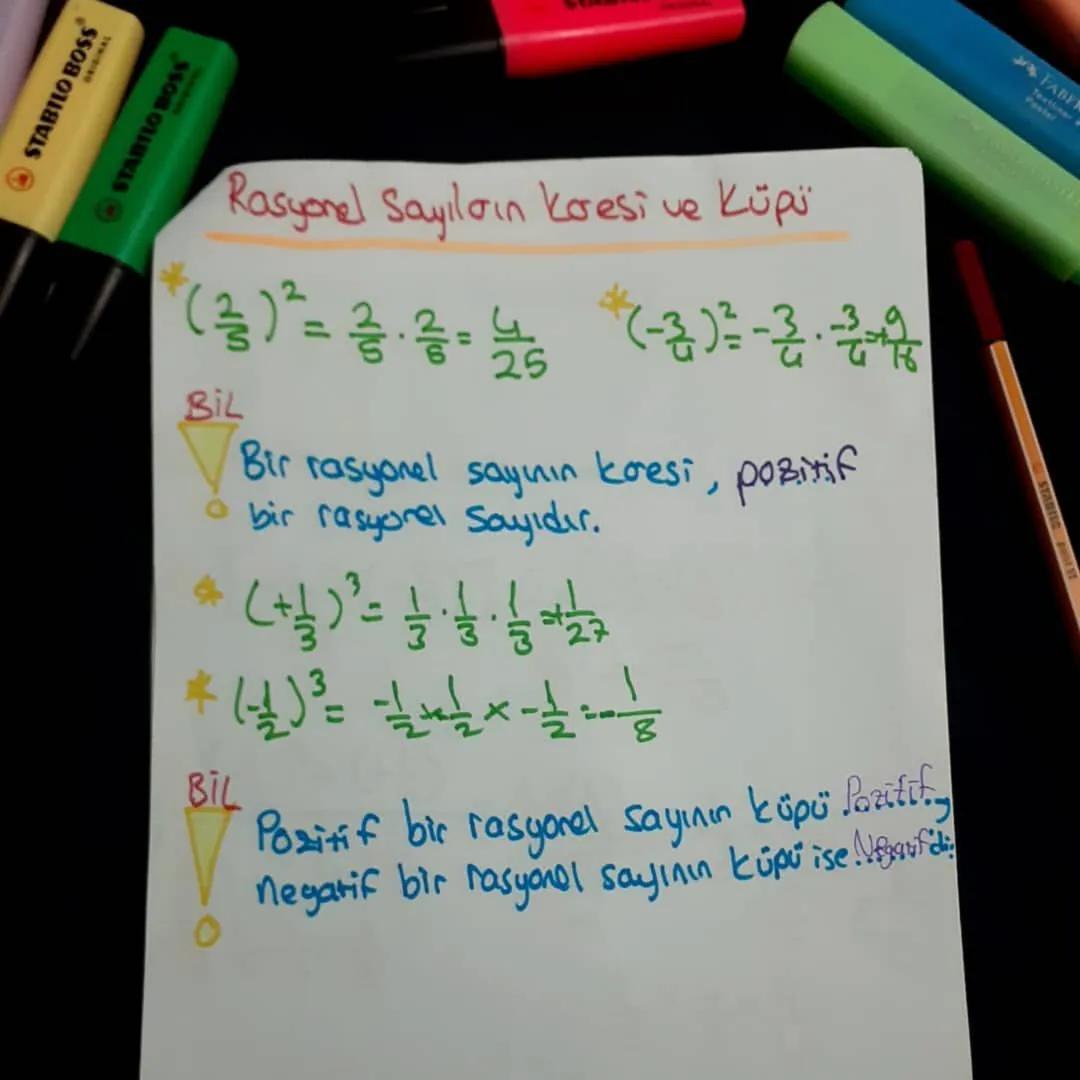 STABILO BOSS
ORIGINAL
STABILO BOSS
ORIGINAL
STABILO
FABER
Textliner
Pastel
Rasyonel Sayıların Karesi ve Küpü
(2/5)² = 2/5 . 2/5 = 4/25
(-3/4)² = -3/4 . -3/4 = +9/16
BİL
Bir rasyonel sayının karesi, pozitif
bir rasyonel sayıdır.
STABILO point 88
(+1/3)³ = 1/3 . 1/3 . 1/3 = +1/27
(-1/2)³ = -1/2 x -1/2 x -1/2 = -1/8
BİL
Pozitif bir rasyonel sayının küpü Pozitif,
negatif bir rasyonel sayının küpü ise Negatif'dir